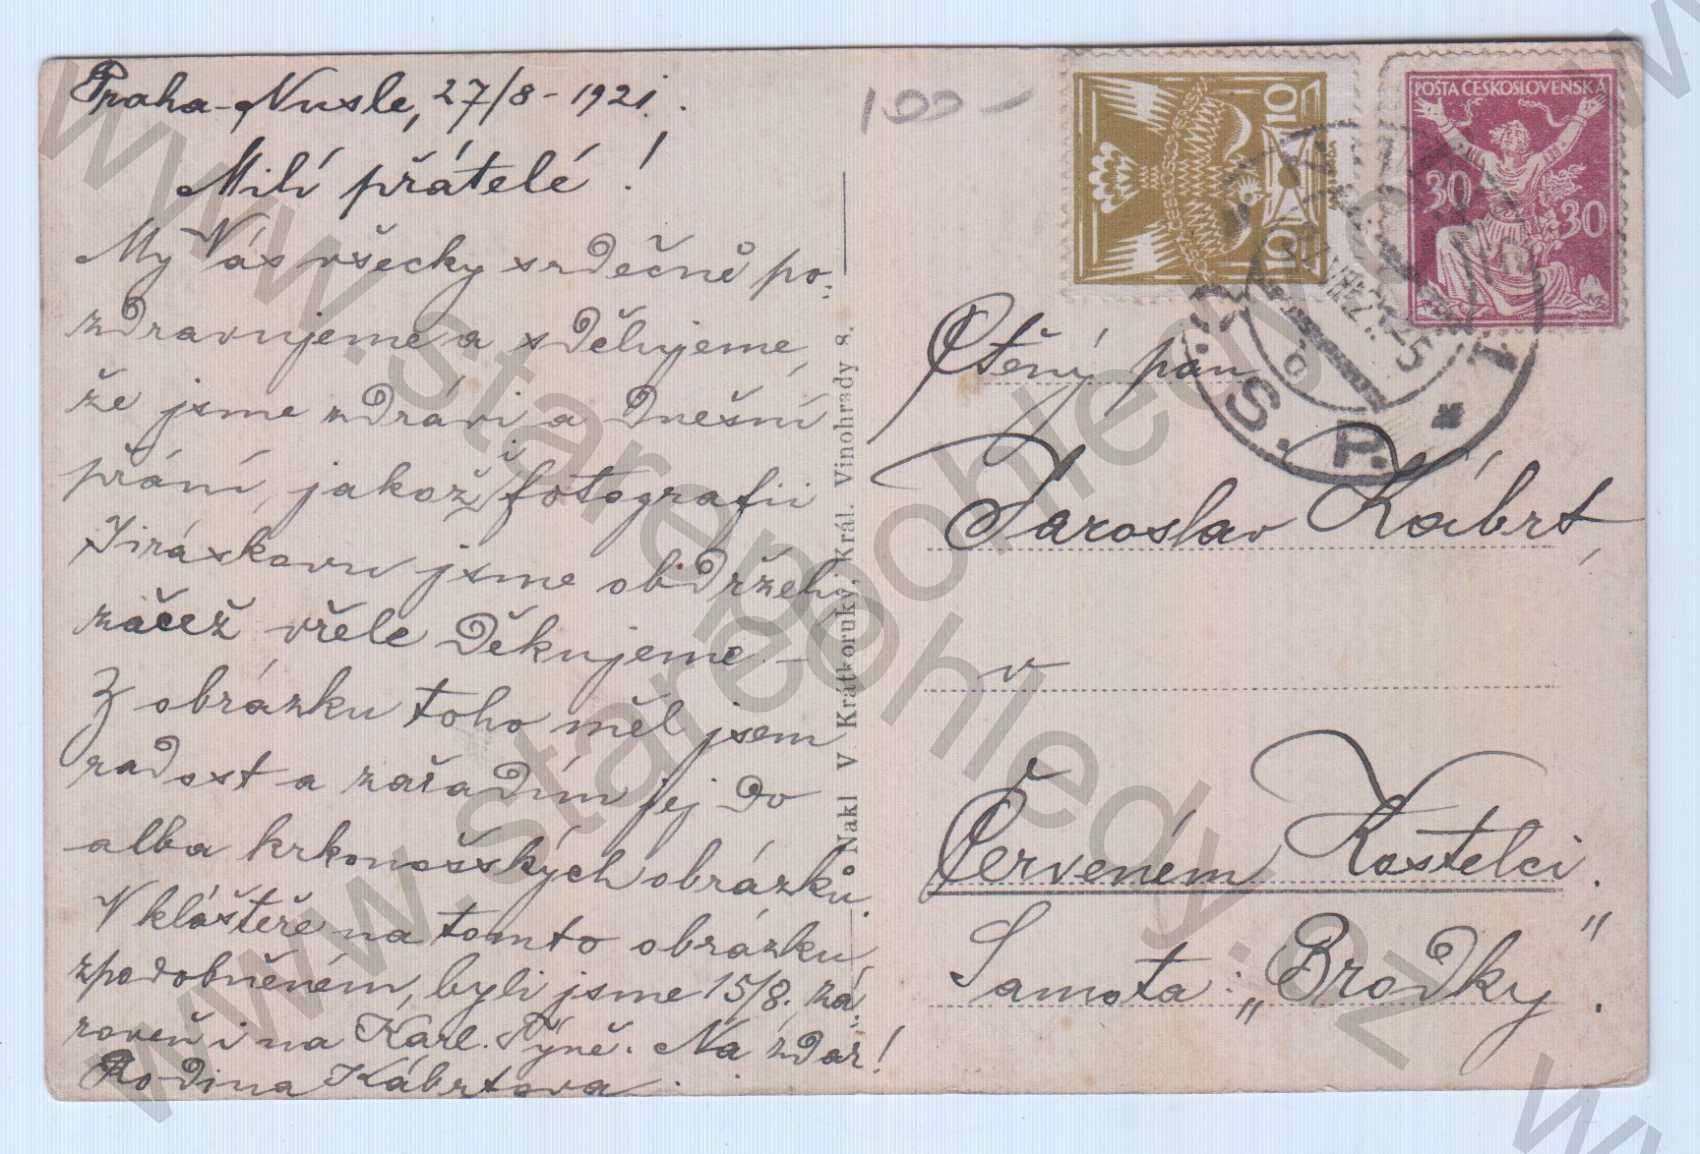 Praha-Nusle, 27/8 - 1921.
Milí přátelé!
My Vás všecky srdečně po-
zdravujeme a sdělujeme,
že jsme zdrávi a dnešní
přání, jakož i fotografii
Jiráskovu jsme obdrželi,
začež vřele děkujeme. –
Z obrázku toho měl jsem
radost a zařadím jej do
alba krkonošských obrázků.
V klášteře na tomto obrázku
zpodobněném, byli jsme 15/8. zá-
roveň i na Karl. Týně. Na zdar!
Rodina Kábrtova.
100 -
Nakl V Krátkoruký, Král. Vinohrady 8.
10
10
POŠTA ČESKOSLOVENSKÁ
30
30
Č.S.P.
Ctěný pan
Jaroslav Kábrt,
v
Červeném Kostelci.
Samota: „Brodky".
www.starepohledy.cz
www.starepohledy.cz